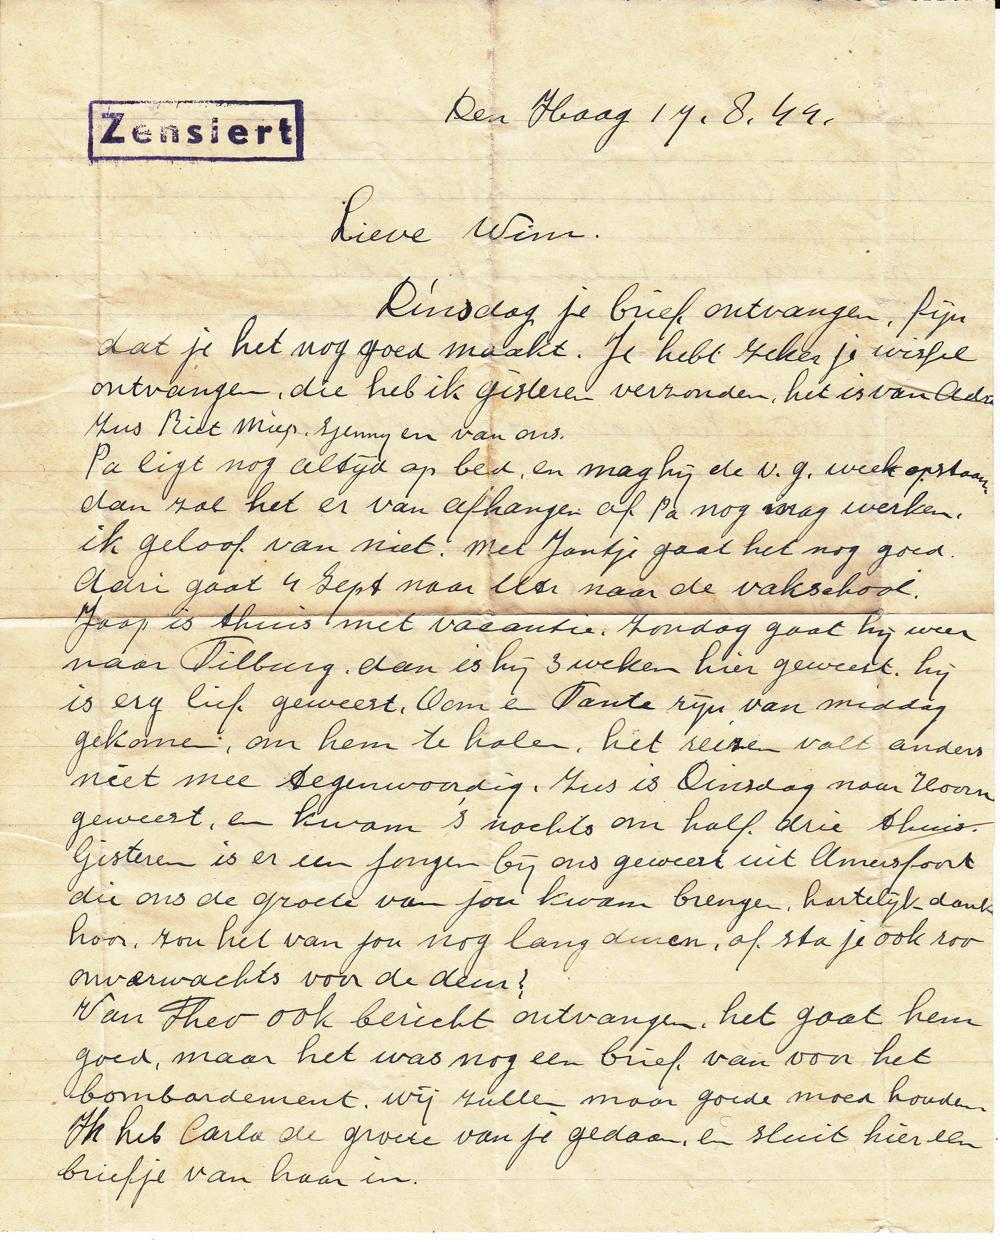 Zensiert
Den Haag 17.8.44.
Lieve Wim.
Dinsdag je brief ontvangen, fijn
dat je het nog goed maakt. Je hebt zeker je wissel
ontvangen, die heb ik gisteren verzonden, het is van Adri
Zus Riet Miep. Sjenny en van ons.
Pa ligt nog altijd op bed, en mag hij de v. g. week opstaan,
dan zal het er van afhangen of Pa nog mag werken.
ik geloof van niet. Met Jantje gaat het nog goed.
Adri gaat 4 Sept naar Utr naar de vakschool.
Jaap is thuis met vacantie. Zondag gaat hij weer
naar Tilburg, dan is hij 3 weken hier geweest. hij
is erg lief geweest. Oom en Tante zijn van middag
gekomen, om hem te halen, het reizen valt anders
niet mee tegenwoordig. Zus is Dinsdag naar Hoorn
geweest, en kwam 's nachts om half drie thuis.
Gisteren is er een jongen bij ons geweest uit Amersfoort
die ons de groete van jou kwam brengen, hartelijk dank
hoor, zou het van jou nog lang duren, of sta je ook zoo
onverwachts voor de deur?
Van Theo ook bericht ontvangen, het gaat hem
goed, maar het was nog een brief van voor het
bombardement. wij zullen maar goede moed houden
Ik heb Carla de groete van je gedaan, en sluit hier een
briefje van haar in.